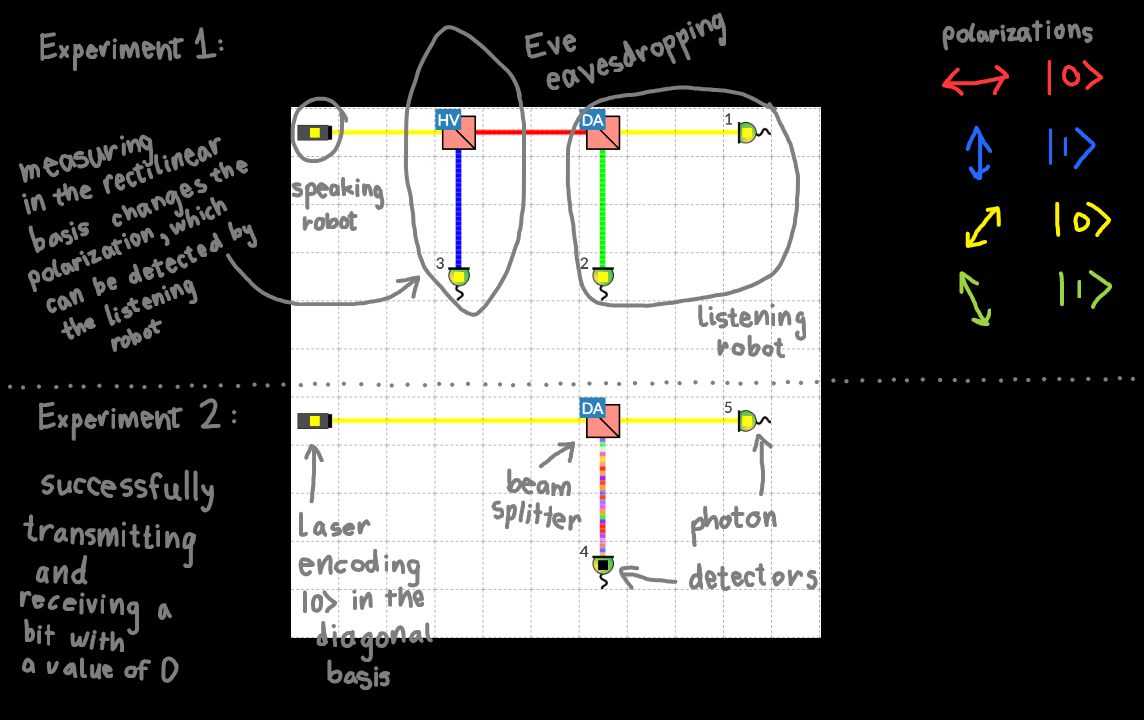 Experiment 1:
Eve
eavesdropping
polarizations
|0>
|1>
|0>
|1>
HV
DA
1
2
3
measuring
in the rectilinear
basis changes the
polarization, which
can be detected by
the listening
robot
speaking
robot
listening
robot
Experiment 2:
successfully
transmitting
and
receiving a
bit with
a value of 0
DA
5
4
laser
encoding
|0> in the
diagonal
basis
beam
splitter
photon
detectors